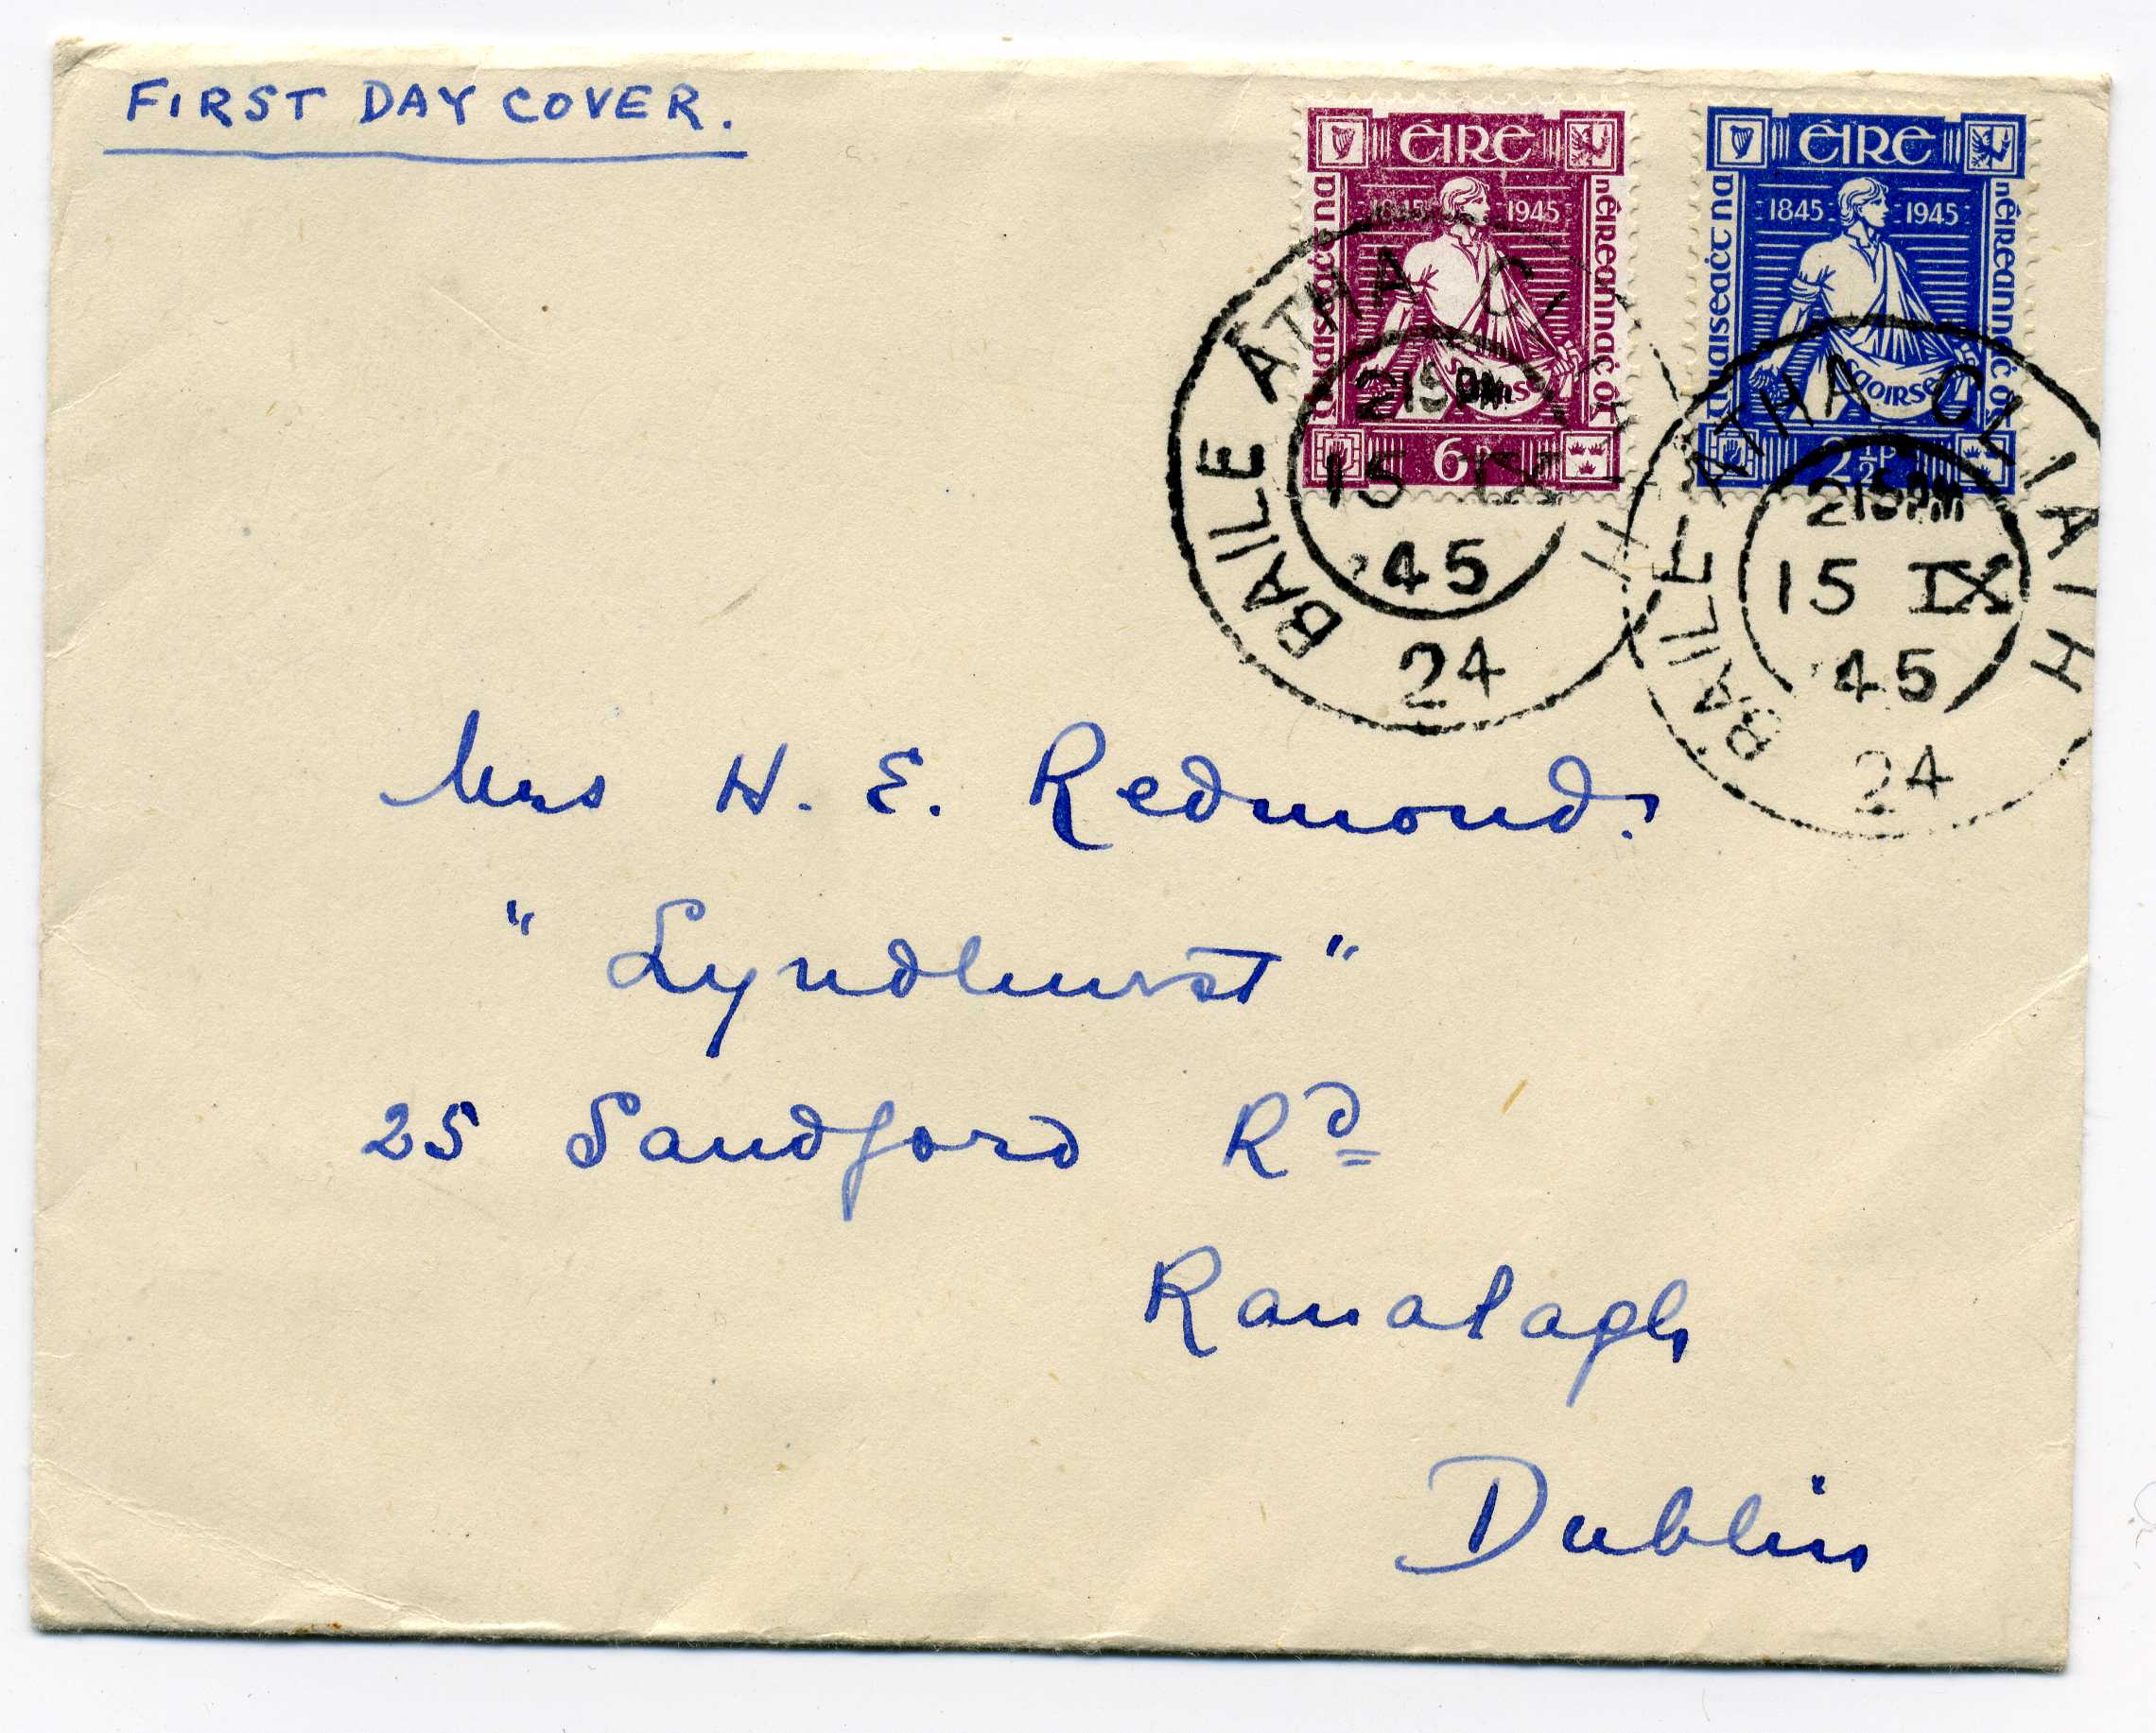 FIRST DAY COVER.
ÉIRE
1945
nÉireannaċ óg
Saoirse
6p
ÉIRE
1845 1945
nuaiseaċt na
nÉireannaċ óg
Saoirse
2½p
BAILE ÁTHA CL H
215PM
15 IX
45
24
BAILE ÁTHA CLIATH
215PM
15 IX
45
24
Mrs H. E. Redmond.
"Lyndhurst"
25 Sandford Rd
Ranalagh
Dublin